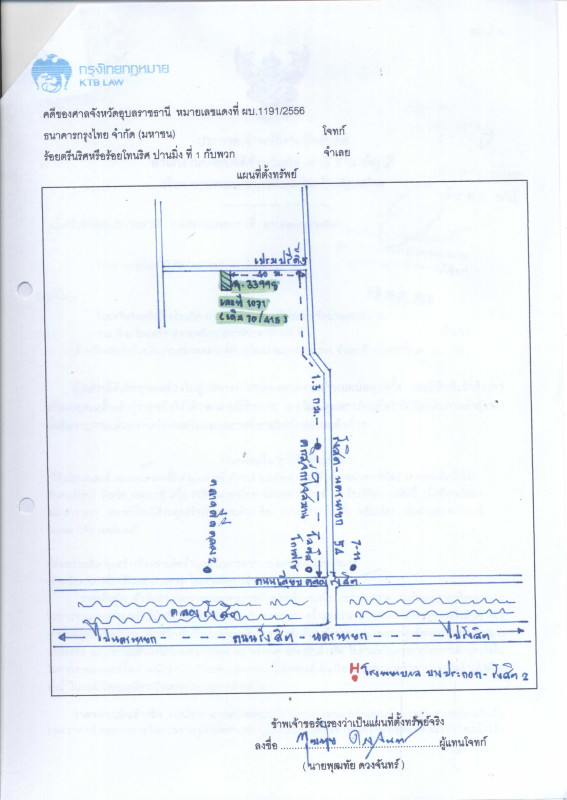 กรุงไทยกฎหมาย
KTB LAW
คดีของศาลจังหวัดอุบลราชธานี หมายเลขแดงที่ ผบ.1191/2556
ธนาคารกรุงไทย จำกัด (มหาชน) โจทก์
ร้อยตรีนริศหรือร้อยโทนริศ ปานมิ่ง ที่ 1 กับพวก จำเลย
แผนที่ตั้งทรัพย์
เปรมปรีดิ์
40 ม
ฉ.33998
เลขที่ 1071
(เดิม 70/415)
1.3 กม.
รังสิต-นครนายก
7-11
ถนนเลียบคลองรังสิต
คลองรังสิต
ไปนครนายก ถนนรังสิต - นครนายก ไปรังสิต
H โรงพยาบาล บางปะกอก-รังสิต 2
ข้าพเจ้าขอรับรองว่าเป็นแผนที่ตั้งทรัพย์จริง
ลงชื่อ ผู้แทนโจทก์
( นายพุฒทัย ดวงจันทร์ )